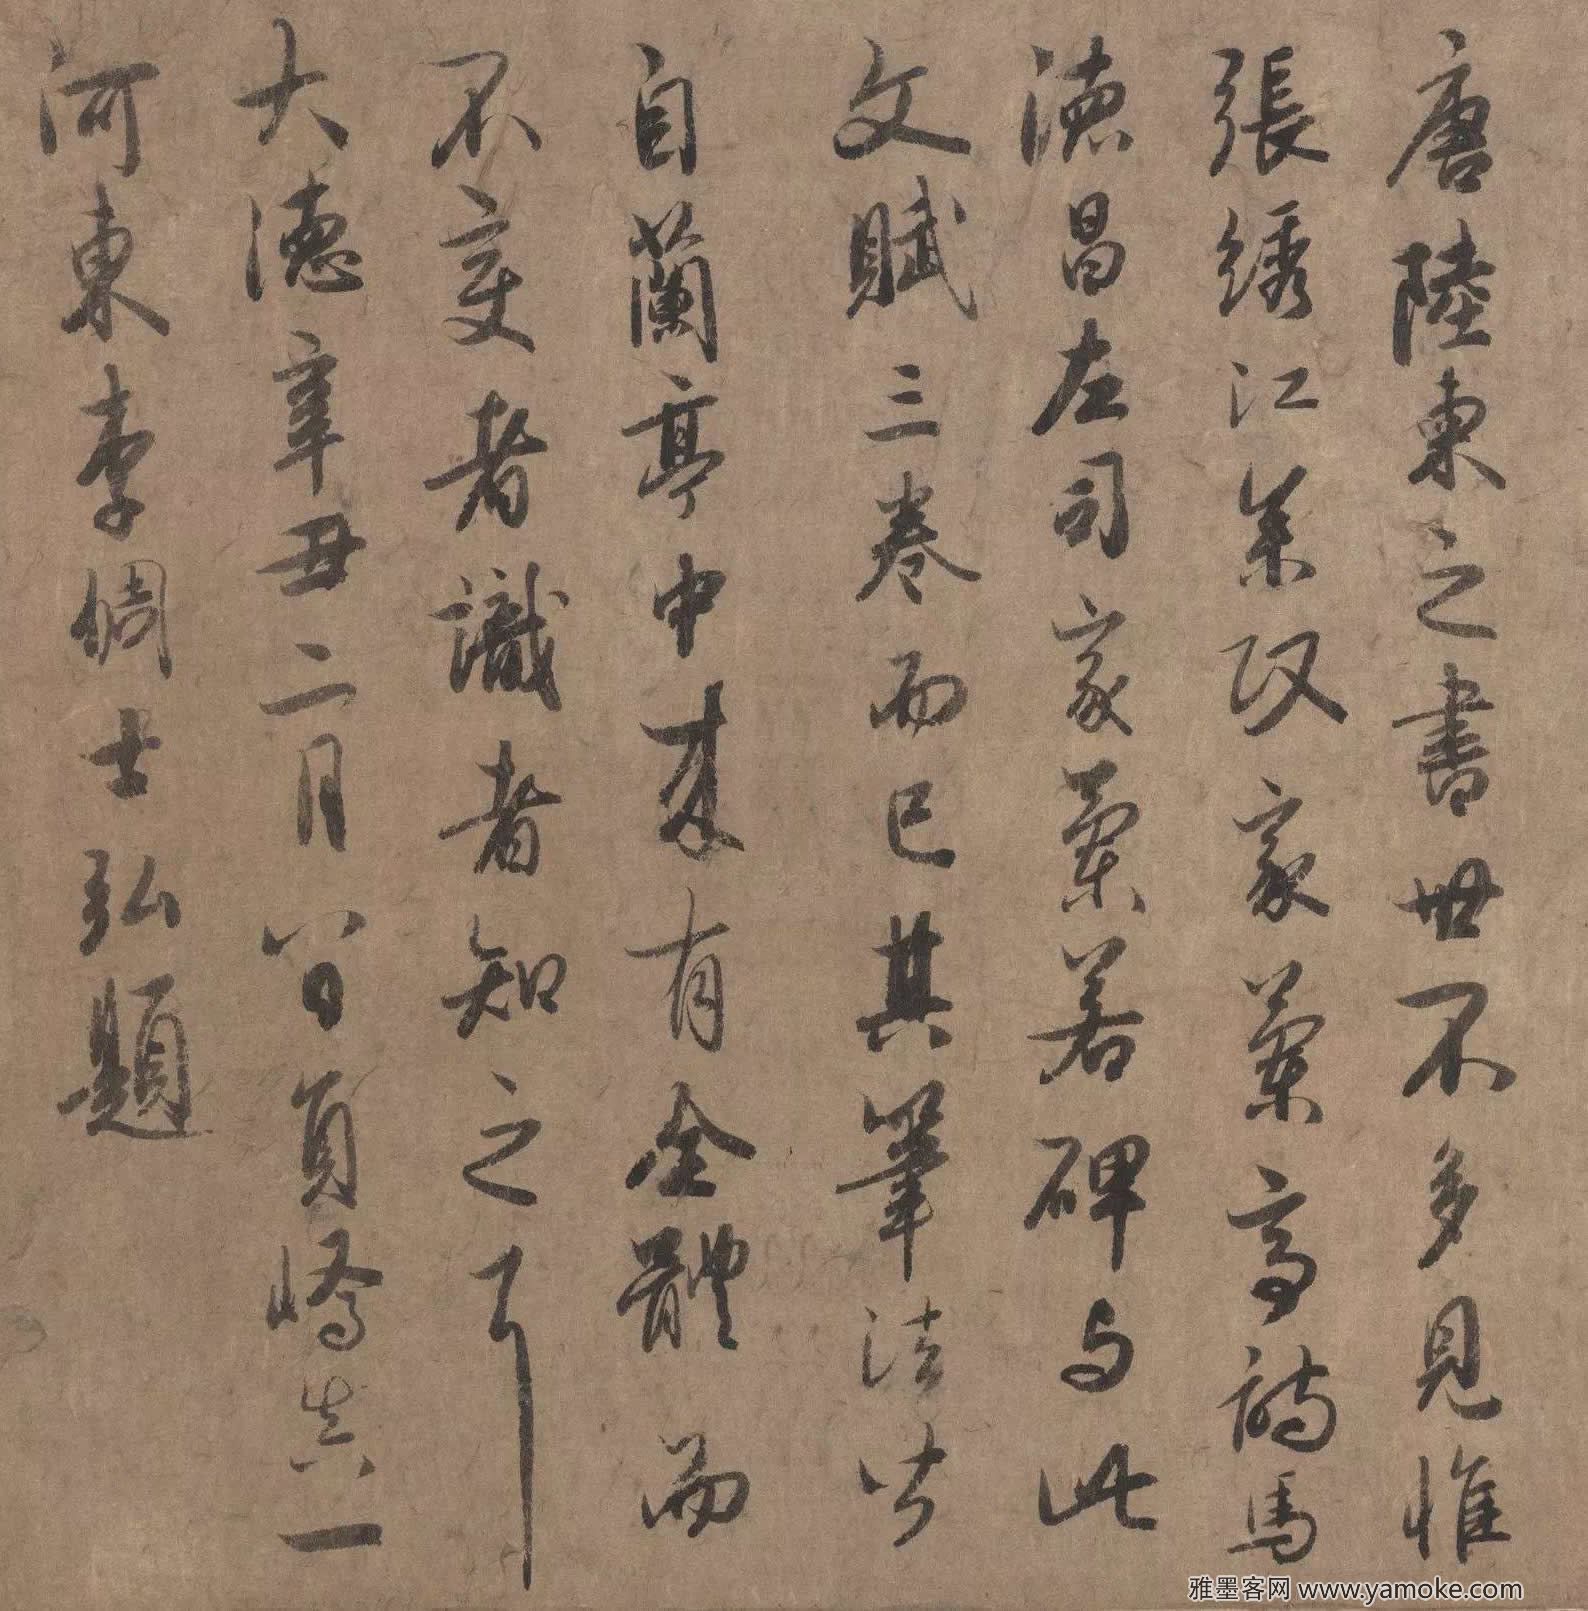 唐陸柬之書世不多見惟
張綉江參政家蘭亭詩馬
德昌左司家蘭若碑与此
文賦三卷而已其筆法皆
自蘭亭中來有全體而
不變者識者知之耳
大德辛丑二月八日員嶠真一
河東李倜士弘題
雅墨客网 www.yamoke.com